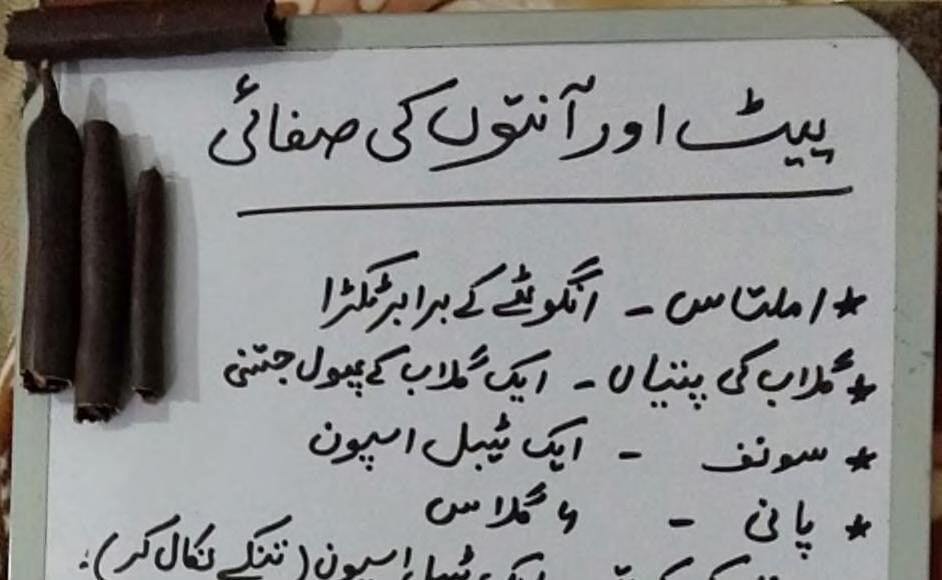 پیٹ اور آنتوں کی صفائی
* املتاس - انگوٹھے کے برابر ٹکڑا
* گلاب کی پتیاں - ایک گلاب کے پھول جتنی
* سونف - ایک ٹیبل اسپون
* پانی - گلاس
ایک ٹیبل اسپون (تنکے نکال کر)